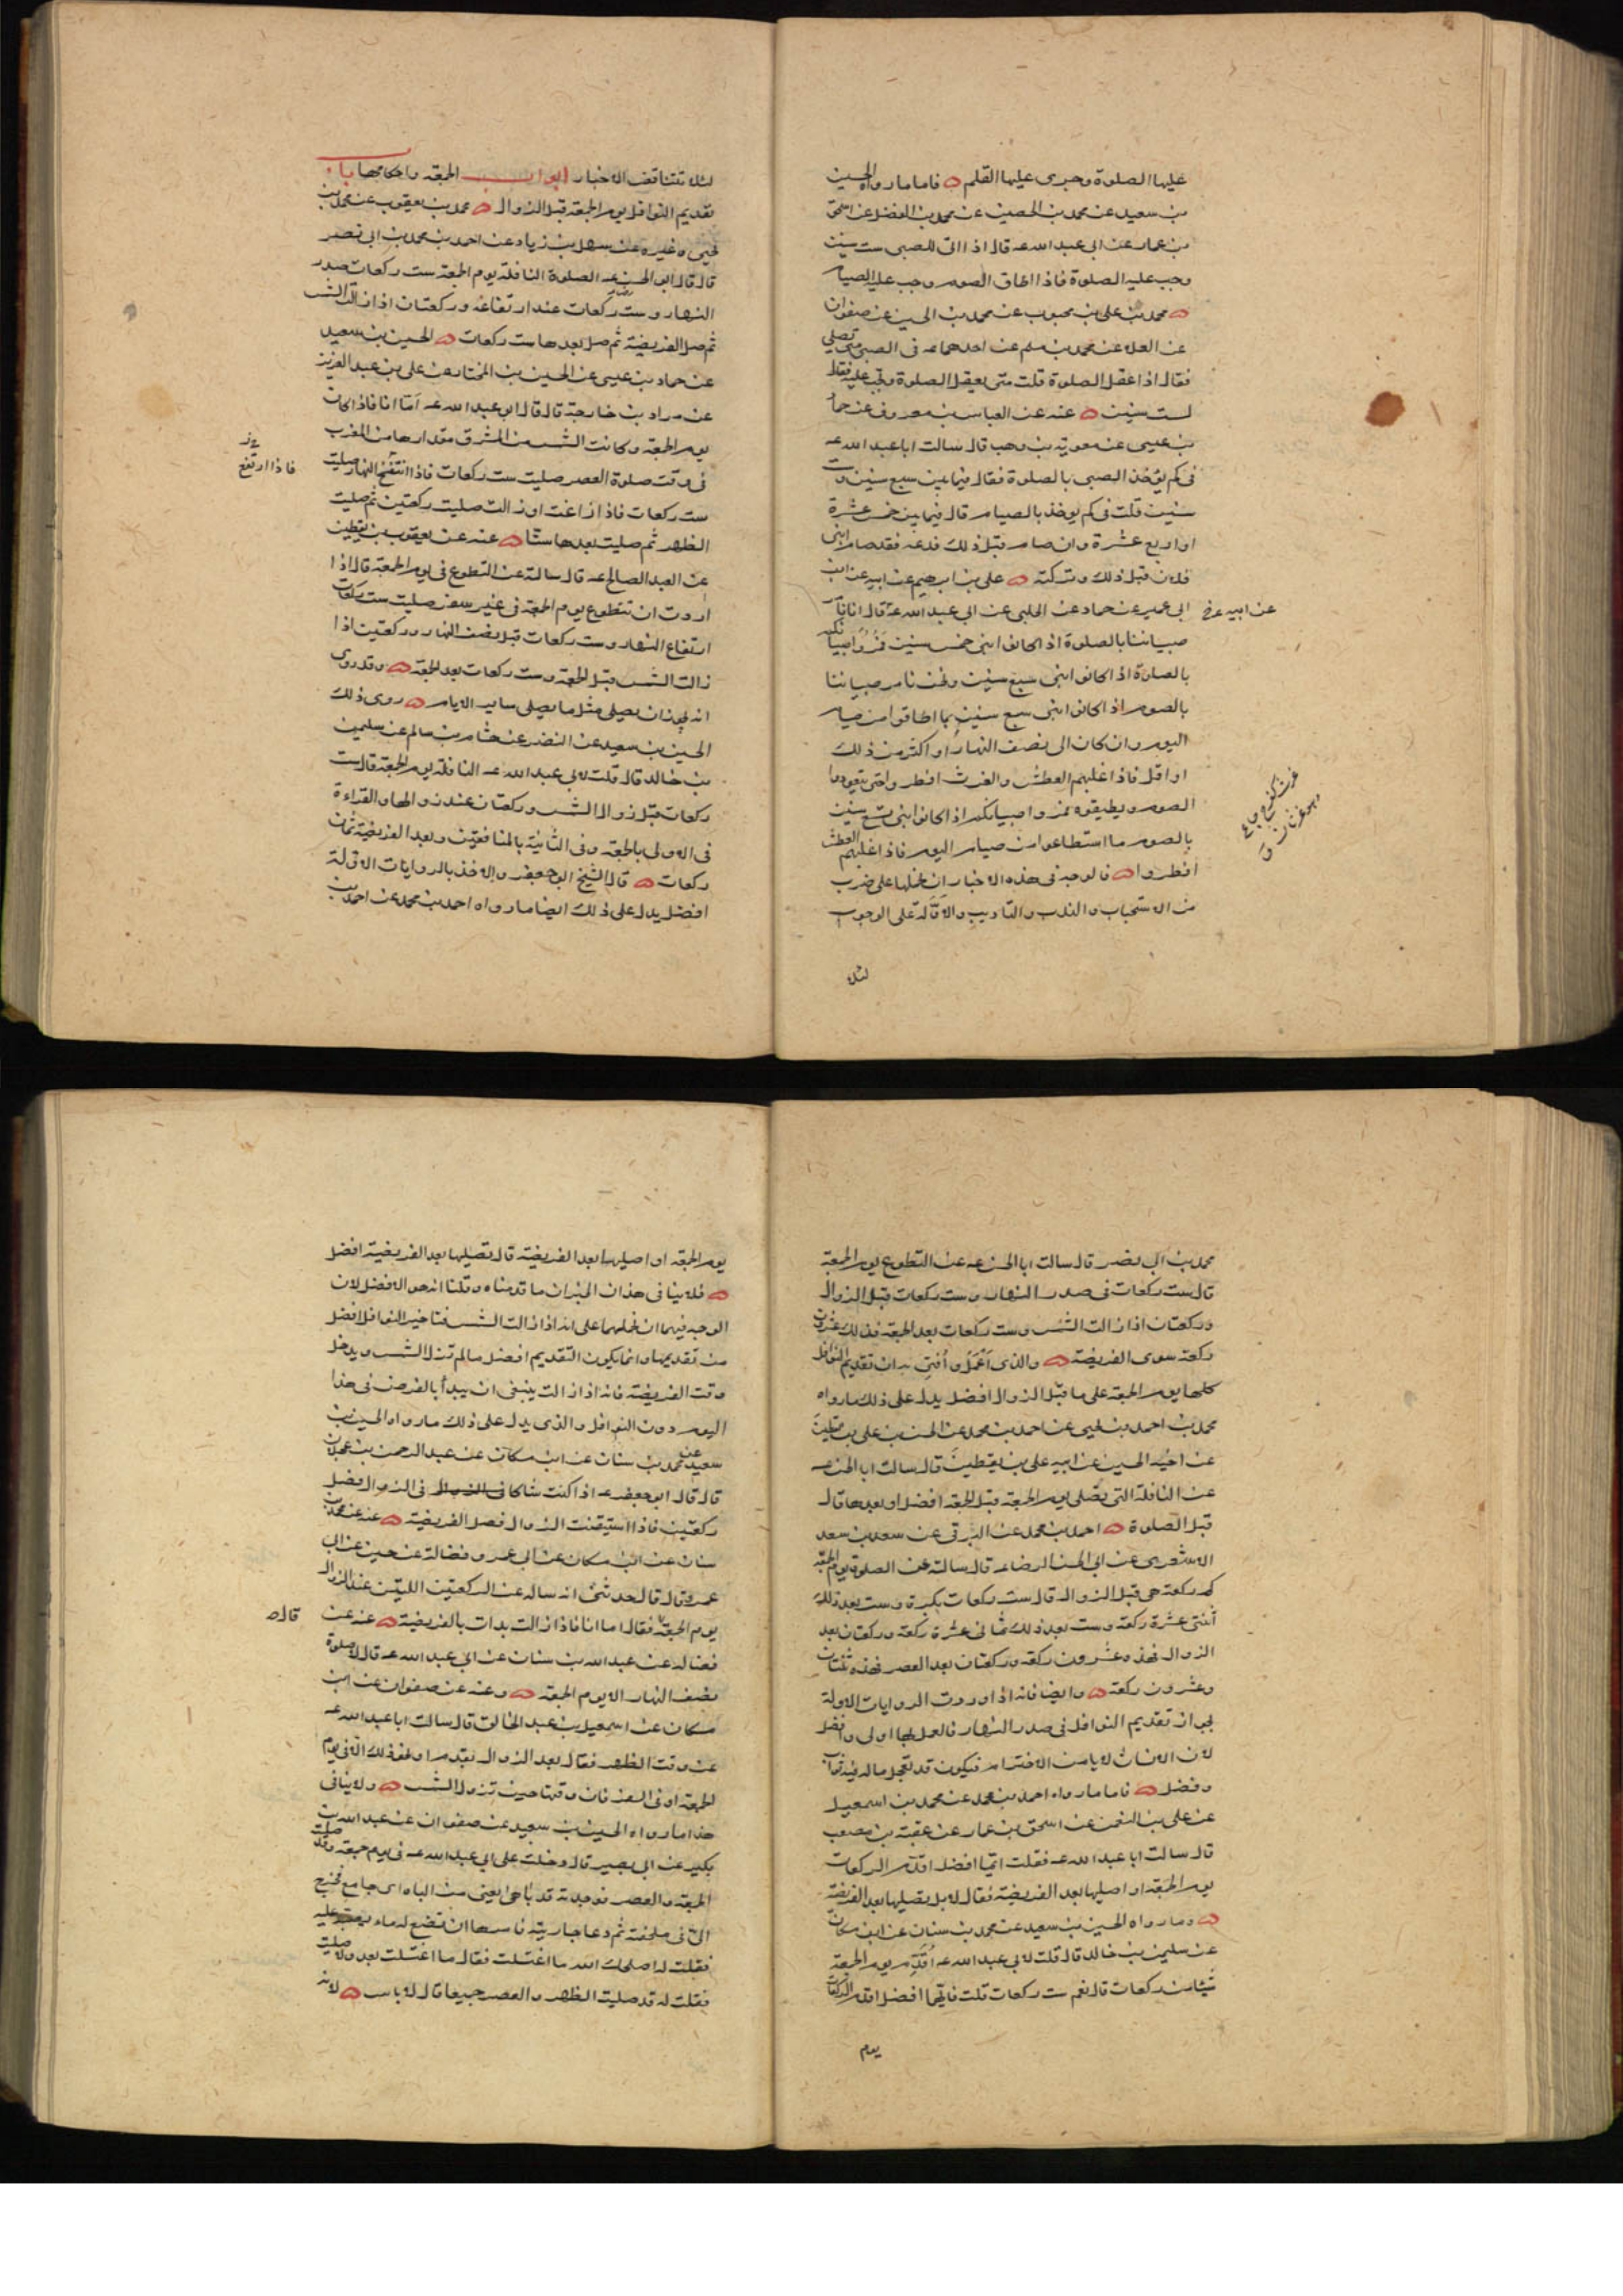 عليها الصلوة وجرى عليها القلم فاما ما رواه الحسين
بن سعيد عن محمد بن الحصين عن محمد بن الفضل عن اسحق
بن عمار عن ابى عبد الله عه قال اذا اتى للصبى ست سنين
وجب عليه الصلوة فاذا اطاق الصوم وجب عليه الصيام
محمد بن على بن محبوب عن محمد بن الحسين عن صفوان
عن العلا عن محمد بن مسلم عن احدهما عه فى الصبى متى يصلى
فقال اذا عقل الصلوة قلت متى يعقل الصلوة وتجب عليه فقال
لست سنين عنه عن العباس بن معروف عن حماد
بن عيسى عن معوية بن وهب قال سالت ابا عبد الله عه
فى كم يؤخذ الصبى بالصلوة فقال فيما بين سبع سنين وست
سنين قلت فى كم يوخذ بالصيام قال فيما بين خمس عشرة
او اربع عشرة وان صام قبل ذلك فدعه فقد صام ابنى
فلان قبل ذلك وتركته على بن ابرهيم عن ابيه عن ابن
ابى عمير عن حماد عن الحلبى عن ابى عبد الله عه قال انا نامر
عن ابيه ع خ
صبياننا بالصلوة اذا كانوا ابنى خمس سنين فمروا صبيانكم
بالصلوة اذا كانوا ابنى سبع سنين ونحن نامر صبياننا
بالصوم اذا كانوا ابنى سبع سنين بما اطاقوا من صيام
اليوم وان كان الى نصف النهار او اكثر من ذلك
او اقل فاذا غلبهم العطش والغرث افطروا حتى يتعودوا
الصوم ويطيقوه فمروا صبيانكم اذا كانوا ابنى تسع سنين
بالصوم ما استطاعوا من صيام اليوم فاذا غلبهم العطش
افطروا فالوجه فى هذه الاخبار ان نحملها على ضرب
من الاستحباب والندب والتاديب والاولة على الوجوب
لئلا
لئلا تتناقض الاخبار ابواب الجمعة واحكامها باب
تقديم النوافل يوم الجمعة قبل الزوال محمد بن يعقوب عن محمد بن
يحيى وغيره عن سهل بن زياد عن احمد بن محمد بن ابى نصر
قال قال ابو الحسن عه الصلوة النافلة يوم الجمعة ست ركعات صدر
النهار وست ركعات عند ارتفاعه وركعتان اذا زالت الشمس
ثم صل الفريضة ثم صل بعدها ست ركعات الحسين بن سعيد
عن حماد بن عيسى عن الحسين بن المختار عن على بن عبد العزيز
عن مراد بن خارجة قال قال ابو عبد الله عه اما انا فاذا كان
يوم الجمعة وكانت الشمس من المشرق مقدارها من المغرب
فى وقت صلوة العصر صليت ست ركعات فاذا انتفخ النهار صليت
فاذا ارتفع
ست ركعات فاذا زاغت او زالت صليت ركعتين ثم صليت
الظهر ثم صليت بعدها ستا عنه عن يعقوب بن يقطين
عن العبد الصالح عه قال سالته عن التطوع فى يوم الجمعة قال اذا
اردت ان تتطوع يوم الجمعة فى غير سفر صليت ست ركعات
ارتفاع النهار وست ركعات قبل نصف النهار وركعتين اذا
زالت الشمس قبل الجمعة وست ركعات بعد الجمعة وقد روى
انه يجوز ان يصلى مثل ما يصلى ساير الايام روى ذلك
الحسين بن سعيد عن النضر عن هشام بن سالم عن سليمن
بن خالد قال قلت لابى عبد الله عه النافلة يوم الجمعة قال ست
ركعات قبل زوال الشمس وركعتان عند زوالها والقراءة
فى الاولى بالجمعة وفى الثانية بالمنافقين وبعد الفريضة ثمان
ركعات قال الشيخ ابو جعفر والاخذ بالروايات الاولة
افضل يدل على ذلك ايضا ما رواه احمد بن محمد عن احمد بن
محمد بن ابى نصر قال سالت ابا الحسن عه عن التطوع يوم الجمعة
قال ست ركعات فى صدر النهار وست ركعات قبل الزوال
وركعتان اذا زالت الشمس وست ركعات بعد الجمعة فذلك عشرون
ركعة سوى الفريضة والذى اعمل وافتى به ان تقديم النوافل
كلها يوم الجمعة على ما قبل الزوال افضل يدل على ذلك ما رواه
محمد بن احمد بن يحيى عن احمد بن محمد عن الحسن بن على بن يقطين
عن اخيه الحسين عن ابيه على بن يقطين قال سالت ابا الحسن عه
عن النافلة التى تصلى يوم الجمعة قبل الجمعة افضل او بعدها قال
قبل الصلوة احمد بن محمد عن البرقى عن سعد بن سعد
الاشعرى عن ابى الحسن الرضا عه قال سالته عن الصلوة يوم الجمعة
كم ركعة هى قبل الزوال قال ست ركعات بكرة وست بعد ذلك
اثنتى عشرة ركعة وست بعد ذلك ثمانى عشرة ركعة وركعتان بعد
الزوال فهذه عشرون ركعة وركعتان بعد العصر فهذه ثنتان
وعشرون ركعة وايضا فانه اذا وردت الروايات الاولة
بجواز تقديم النوافل فى صدر النهار فالعمل بها اولى وافضل
لان الانسان لا يامن الاخترام فيكون قد تعجل ماله فيه ثواب
وفضل فاما ما رواه احمد بن محمد عن محمد بن اسمعيل
عن على بن النعمن عن اسحق بن عمار عن عقبة بن مصعب
قال سالت ابا عبد الله عه فقلت ايما افضل اقدم الركعات
يوم الجمعة او اصليها بعد الفريضة فقال لا بل تصليها بعد الفريضة
وما رواه الحسين بن سعيد عن محمد بن سنان عن ابن مسكان
عن سليمن بن خالد قال قلت لابى عبد الله عه اقدم يوم الجمعة
شيئا من ركعات قال نعم ست ركعات قلت فايهما افضل اقدم الركعات
يوم
يوم الجمعة او اصليها بعد الفريضة قال تصليها بعد الفريضة افضل
فلا ينافى هذان الخبران ما قدمناه وقلنا انه هو الافضل لان
الوجه فيهما ان نحملهما على انه اذا زالت الشمس فتاخير النوافل افضل
من تقديمها وانما يكون التقديم افضل ما لم تزل الشمس ويدخل
وقت الفريضة فانه اذا زالت ينبغى ان يبدأ بالفرض فى هذا
اليوم دون النوافل والذى يدل على ذلك ما رواه الحسين بن
سعيد عن محمد بن سنان عن ابن مسكان عن عبد الرحمن بن عجلان
قال قال ابو جعفر عه اذا كنت شاكا فى الزوال فصل
ركعتين فاذا استيقنت الزوال فصل الفريضة عنه عن محمد بن
سنان عن ابن مسكان عن ابى عمر وفضالة عن حسين عن ابى
عمرو قال قال حدثنى انه ساله عن الركعتين اللتين عند الزوال
يوم الجمعة فقال اما انا فاذا زالت بدات بالفريضة عنه عن
قال ص
فضالة عن عبد الله بن سنان عن ابى عبد الله عه قال لا صلوة
نصف النهار الا يوم الجمعة وعنه عن صفوان عن ابن
مسكان عن اسمعيل بن عبد الخالق قال سالت ابا عبد الله عه
عن وقت الظهر فقال بعد الزوال بقدم او نحو ذلك الا فى يوم
الجمعة او فى السفر فان وقتها حين تزول الشمس ولا ينافى
هذا ما رواه الحسين بن سعيد عن صفوان عن عبد الله بن
بكير عن ابى بصير قال دخلت على ابى عبد الله عه فى يوم جمعة وقد صليت
الجمعة والعصر فوجدته قد باهى يعنى من الباه اى جامع فخرج
الى فى ملحفة ثم دعا جاريته فامرها ان تضع له ماء يصبه عليه
فقلت له اصلحك الله ما اغتسلت فقال ما اغتسلت بعد ولا صليت
فقلت له قد صليت الظهر والعصر جميعا قال لا باس لانه